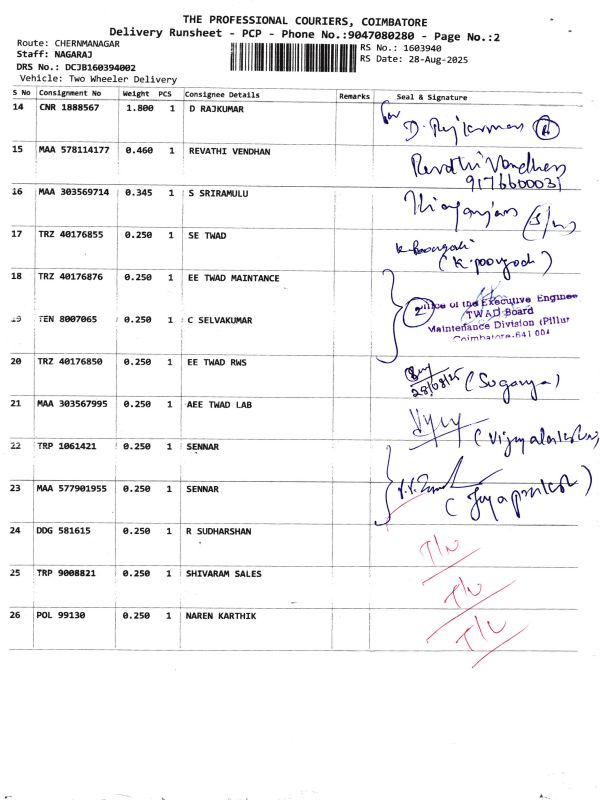 THE PROFESSIONAL COURIERS, COIMBATORE
Delivery Runsheet - PCP - Phone No.:9047080280 - Page No.:2
Route: CHERNMANAGAR
Staff: NAGARAJ
DRS No.: DCJB160394002
Vehicle: Two Wheeler Delivery
RS No.: 1603940
RS Date: 28-Aug-2025
S No Consignment No Weight PCS Consignee Details Remarks Seal & Signature
14 CNR 1888567 1.800 1 D RAJKUMAR for D. Rajkumar
15 MAA 578114177 0.460 1 REVATHI VENDHAN Revathi Vendhan
9176600031
16 MAA 303569714 0.345 1 S SRIRAMULU
17 TRZ 40176855 0.250 1 SE TWAD (K. poongodi)
18 TRZ 40176876 0.250 1 EE TWAD MAINTANCE
2 Office of the Executive Enginee
TWAD Board
19 TEN 8007065 0.250 1 C SELVAKUMAR
Maintenance Division (Pillur
Coimbatore-641 004
20 TRZ 40176850 0.250 1 EE TWAD RWS 28/08/25 (Suganya)
21 MAA 303567995 0.250 1 AEE TWAD LAB (Vijayalakshmi)
22 TRP 1061421 0.250 1 SENNAR
23 MAA 577901955 0.250 1 SENNAR (Jayaprakash)
24 DDG 581615 0.250 1 R SUDHARSHAN
25 TRP 9008821 0.250 1 SHIVARAM SALES
26 POL 99130 0.250 1 NAREN KARTHIK